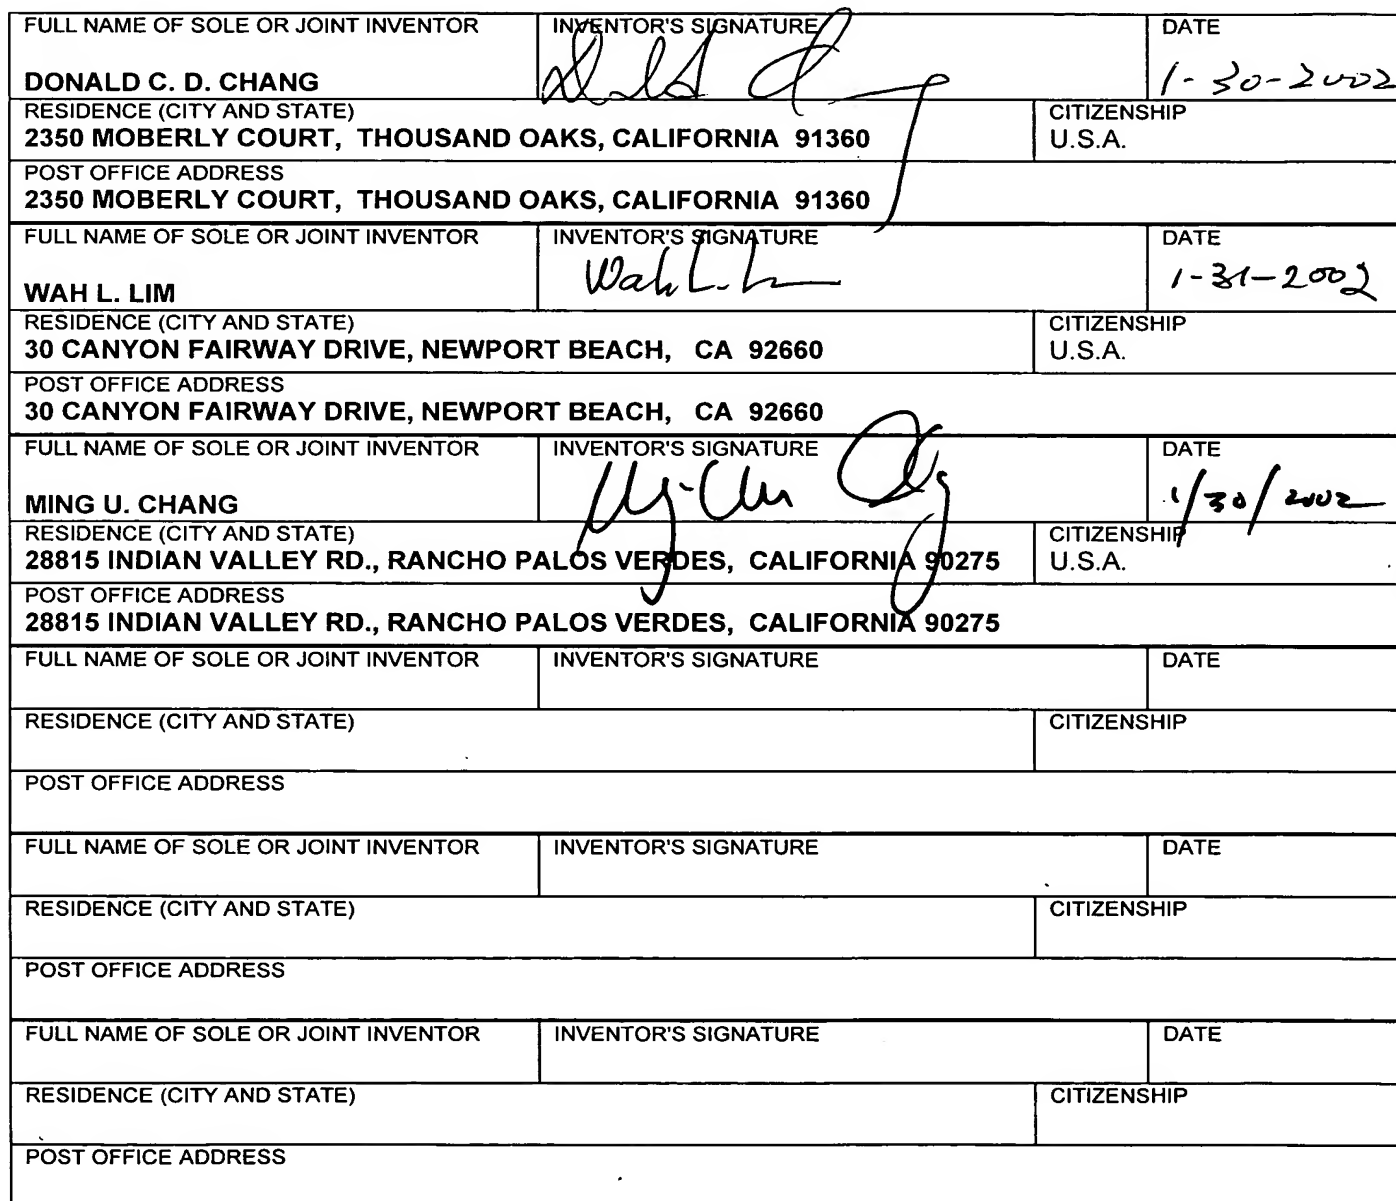 FULL NAME OF SOLE OR JOINT INVENTOR INVENTOR'S SIGNATURE DATE
DONALD C. D. CHANG 1-30-2002
RESIDENCE (CITY AND STATE) CITIZENSHIP
2350 MOBERLY COURT, THOUSAND OAKS, CALIFORNIA 91360 U.S.A.
POST OFFICE ADDRESS
2350 MOBERLY COURT, THOUSAND OAKS, CALIFORNIA 91360
FULL NAME OF SOLE OR JOINT INVENTOR INVENTOR'S SIGNATURE DATE
WAH L. LIM Wah L. 1-31-2002
RESIDENCE (CITY AND STATE) CITIZENSHIP
30 CANYON FAIRWAY DRIVE, NEWPORT BEACH, CA 92660 U.S.A.
POST OFFICE ADDRESS
30 CANYON FAIRWAY DRIVE, NEWPORT BEACH, CA 92660
FULL NAME OF SOLE OR JOINT INVENTOR INVENTOR'S SIGNATURE DATE
MING U. CHANG 1/30/2002
RESIDENCE (CITY AND STATE) CITIZENSHIP
28815 INDIAN VALLEY RD., RANCHO PALOS VERDES, CALIFORNIA 90275 U.S.A.
POST OFFICE ADDRESS
28815 INDIAN VALLEY RD., RANCHO PALOS VERDES, CALIFORNIA 90275
FULL NAME OF SOLE OR JOINT INVENTOR INVENTOR'S SIGNATURE DATE
RESIDENCE (CITY AND STATE) CITIZENSHIP
POST OFFICE ADDRESS
FULL NAME OF SOLE OR JOINT INVENTOR INVENTOR'S SIGNATURE DATE
RESIDENCE (CITY AND STATE) CITIZENSHIP
POST OFFICE ADDRESS
FULL NAME OF SOLE OR JOINT INVENTOR INVENTOR'S SIGNATURE DATE
RESIDENCE (CITY AND STATE) CITIZENSHIP
POST OFFICE ADDRESS